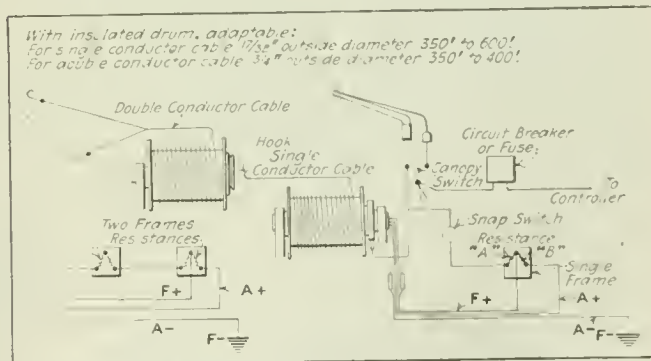 With insulated drum, adaptable:
For single conductor cable 17/32" outside diameter 350' to 600'.
For double conductor cable 3/4" outside diameter 350' to 400'.
C
Double Conductor Cable
Hook
Single
Conductor Cable
Circuit Breaker
or Fuse
Canopy
Switch
To
Controller
Two Frames
Resistances
Snap Switch
Resistance
"A" "B"
Single
Frame
F+
A+
F+
A+
A-
F-
A-
F-